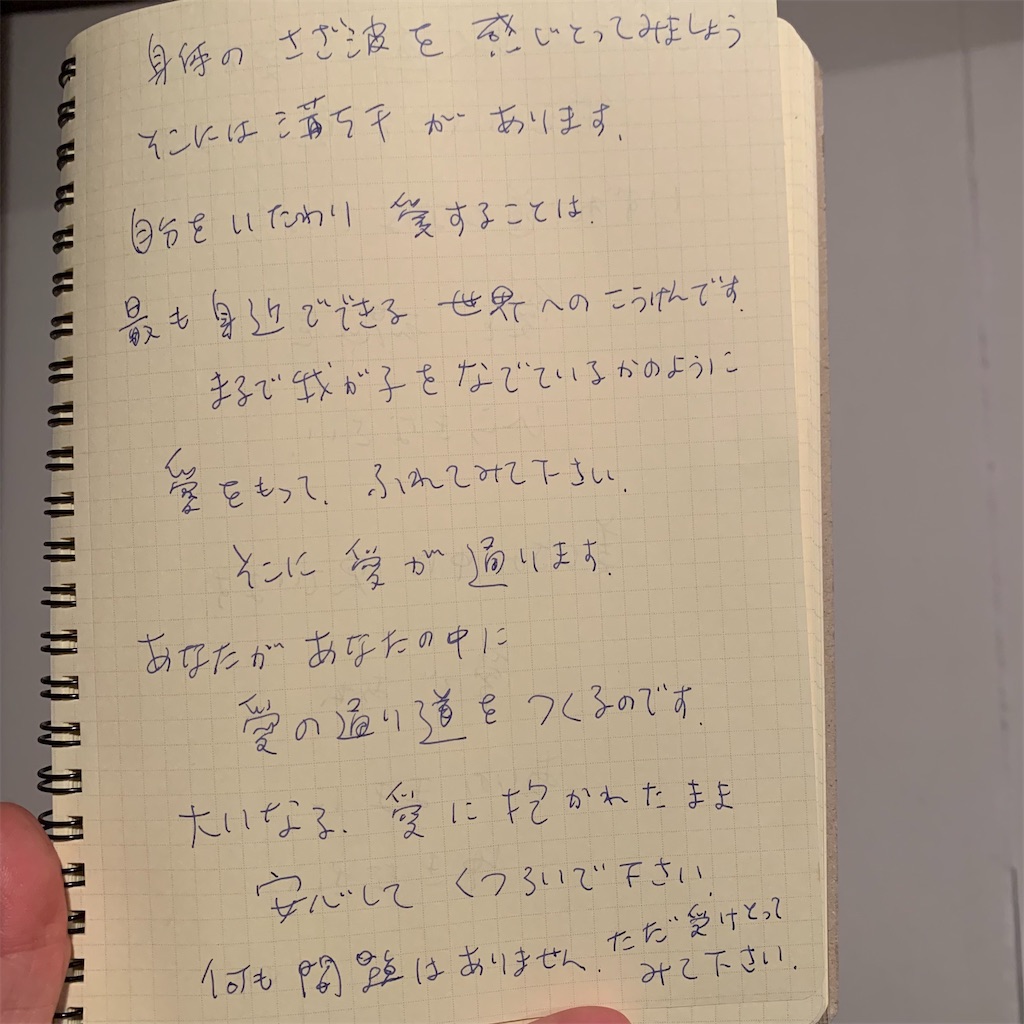 身体の さざ波を 感じとってみましょう
そこには 満ち干 が あります.
自分を いたわり 愛することは.
最も 身近でできる 世界への こうけんです.
まるで 我が子を なでているかのように
愛をもって. ふれてみて下さい.
そこに 愛が 通ります.
あなたが あなたの中に
愛の通り道を つくるのです.
大いなる. 愛に 抱かれたまま
安心して くつろいで下さい.
何も 問題はありません. ただ 受けとって
みて下さい.